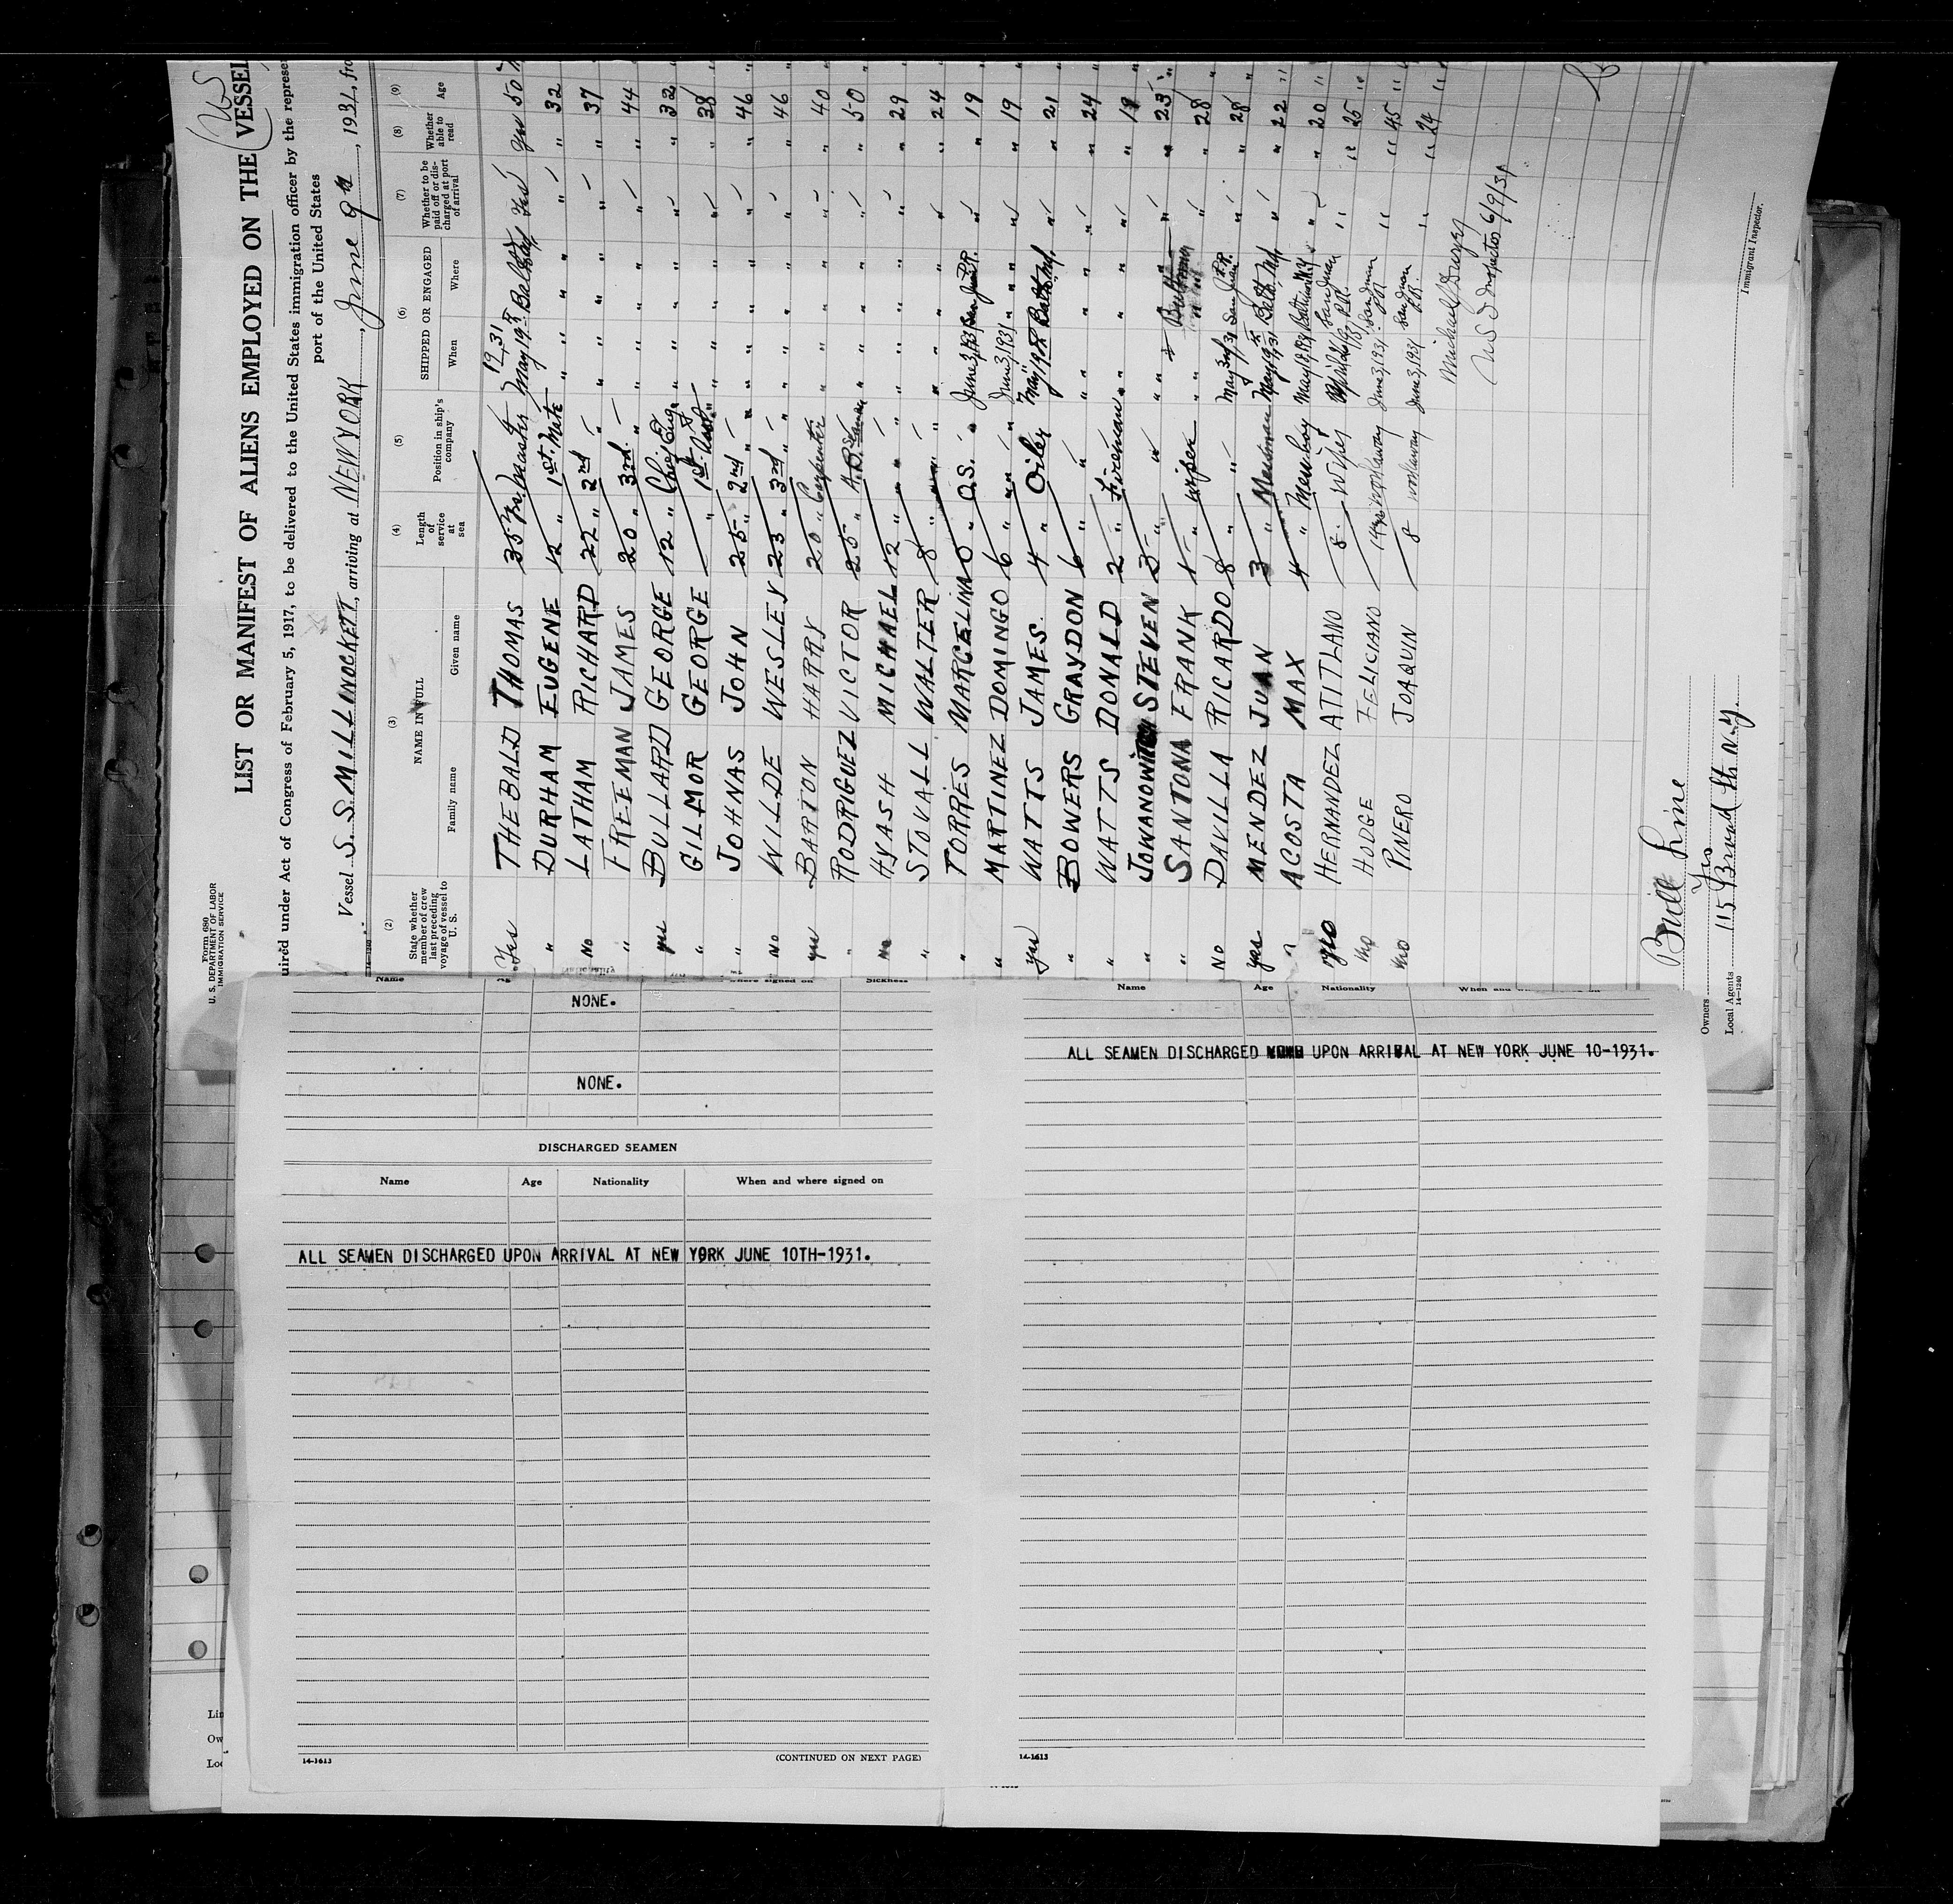 Form 680
U. S. DEPARTMENT OF LABOR
IMMIGRATION SERVICE
US
LIST OR MANIFEST OF ALIENS EMPLOYED ON THE VESSEL
uired under Act of Congress of February 5, 1917, to be delivered to the United States immigration officer by the represe
port of the United States
Vessel S. S. MILLINOCKETT, arriving at NEW YORK, June 9th, 1931, fro
14-1240
(2) (3) (4) (5) (6) (7) (8) (9)
State whether member of crew last preceding voyage of vessel to U. S. NAME IN FULL Family name Given name Length of service at sea Position in ship's company SHIPPED OR ENGAGED When Where Whether to be paid off or discharged at port of arrival Whether able to read Age
1931
Yes THEBALD THOMAS 35 Yrs Master May 19th Balto Yes Yes 50
" DURHAM EUGENE 12 " 1st Mate " " " " 32 "
No LATHAM RICHARD 22 " 2nd " " " " " 37 "
" FREEMAN JAMES 20 " 3rd " " " " " 44 "
yes BULLARD GEORGE 12 " Chief Eng. " " " " 32 "
" GILMOR GEORGE " 1st " " " " 38 "
" JOHNAS JOHN 25 " 2nd " " " " " 46 "
No WILDE WESLEY 23 " 3rd " " " " " 46 "
yes BARTON HARRY 20 " Carpenter " " " " 40 "
" RODRIGUEZ VICTOR 25 " A.B. Seaman " " " " 50 "
No HYASH MICHAEL 12 " " " " " " 29 "
" STOVALL WALTER 8 " " " " " " 24 "
" TORRES MARCELINA 0 " O.S. June 3, 1931 San Juan P.R. " " 19 "
" MARTINEZ DOMINGO 6 " " June 3, 1931 " " " 19 "
yes WATTS JAMES 4 " Oiler May 19th Balto, Md. " " 21 "
" BOWERS GRAYDON 6 " " " " " " 24 "
" WATTS DONALD 2 " Fireman " " " " 19 "
" JOWANOWITCH STEVEN 3 " " " " " " 23 "
" SANTONA FRANK 1 " wiper " " " 28 "
No DAVILLA RICARDO 8 " " May 3rd 31 San Juan P.R. " " 28 "
yes MENDEZ JUAN 3 " Messman May 19th, 31 Balto, Md " " 22 "
" ACOSTA MAX 4 " Messboy May 18, 1931 " " 20 "
no HERNANDEZ ATITLANO 8 Wiper San Juan P.R. " " 25 "
no HODGE FELICIANO 14 workaway June 3, 1931 San Juan P.R. " " 45 "
no PINERO JOAQUIN 8 workaway June 3, 1931 San Juan P.R. " " 24 "
Michael
U S Inspector 6/9/31
Immigrant Inspector.
Bull Line
Owners Yes
Local Agents 115 Broad St N.Y.
14-1240
Name Where signed on Sickness
NONE.
NONE.
DISCHARGED SEAMEN
Name Age Nationality When and where signed on
ALL SEAMEN DISCHARGED UPON ARRIVAL AT NEW YORK JUNE 10TH-1931.
14-1613 (CONTINUED ON NEXT PAGE)
Name Age Nationality When and where signed on
ALL SEAMEN DISCHARGED UPON ARRIVAL AT NEW YORK JUNE 10-1931.
14-1613
Lin
Ow
Loc